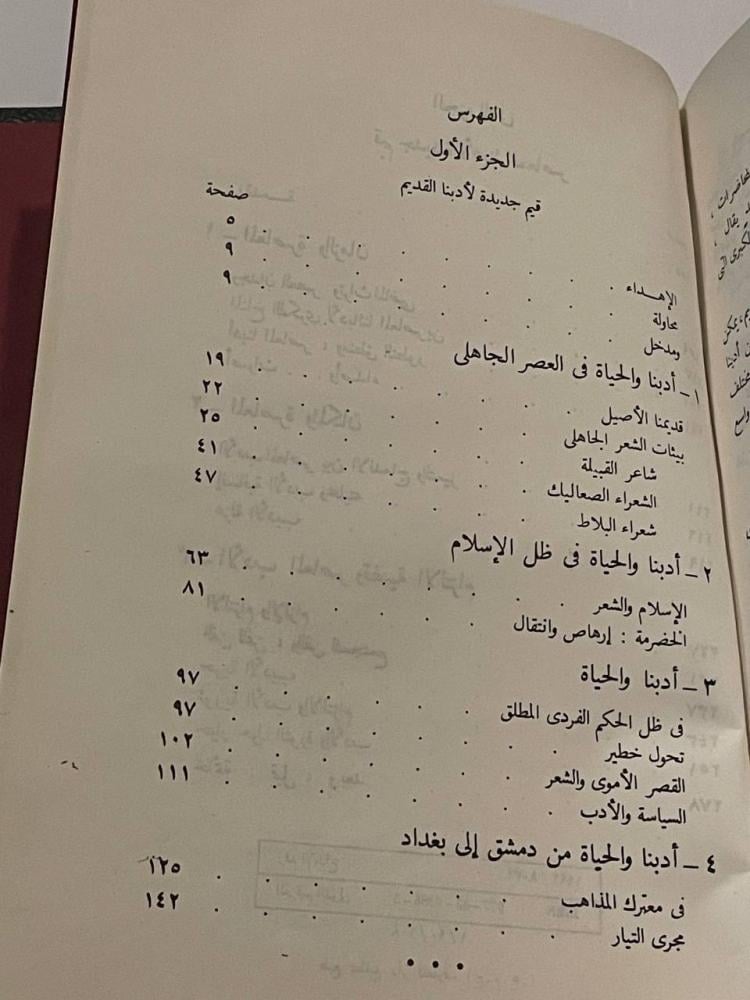 الفهرس
الجزء الأول
قيم جديدة لأدبنا القديم
صفحة
الإهـداء . . . . . . ٥
محاولة . . . . . . ٩
ومدخل . . . . . . ٩
١ ـ أدبنا والحياة فى العصر الجاهلى
قديمنا الأصيل . . . . . . ١٩
بيئات الشعر الجاهلى . . . . . . ٢٢
شاعر القبيلة . . . . . . ٢٥
الشعراء الصعاليك . . . . . . ٤١
شعراء البلاط . . . . . . ٤٧
٢ ـ أدبنا والحياة فى ظل الإسلام
الإسلام والشعر . . . . . . ٦٣
الخضرمة : إرهاص وانتقال . . . . . . ٨١
٣ ـ أدبنا والحياة
فى ظل الحكم الفردى المطلق . . . . . ٩٧
تحول خطير . . . . . . ٩٧
القصر الأموى والشعر . . . . . . ١٠٢
السياسة والأدب . . . . . . ١١١
٤ ـ أدبنا والحياة من دمشق إلى بغداد
فى معترك المذاهب . . . . . . ١٢٥
مجرى التيار . . . . . . ١٤٢
• • •